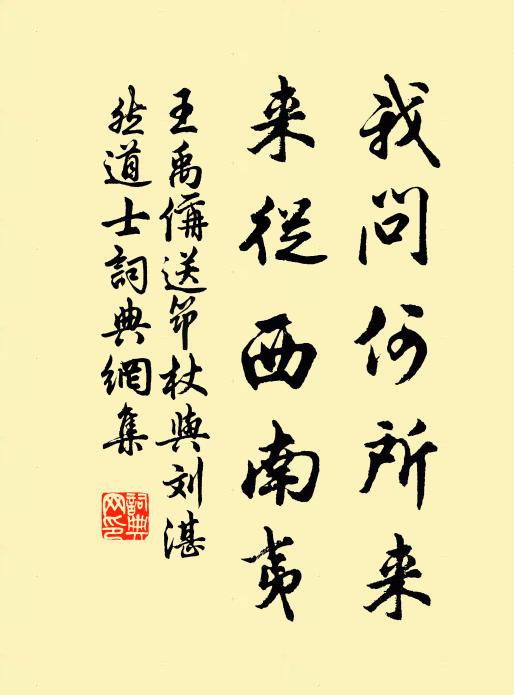 我问何所来
来从西南夷
王禹偁送笻杖与刘湛
然道士詞典網集
詞典网印